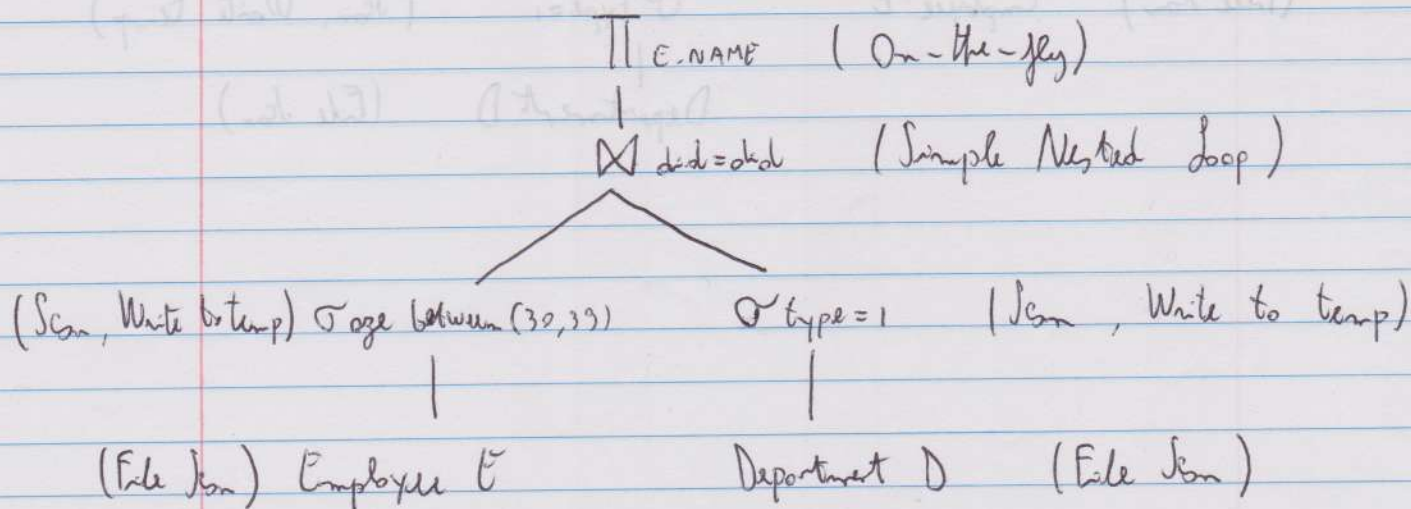 Π E.NAME (On-the-fly)
⋈ did=did (Simple Nested Loop)
(Scan, Write to temp) σ age between (30,39) σ type=1 (Scan, Write to temp)
(File Scan) Employee E Department D (File Scan)